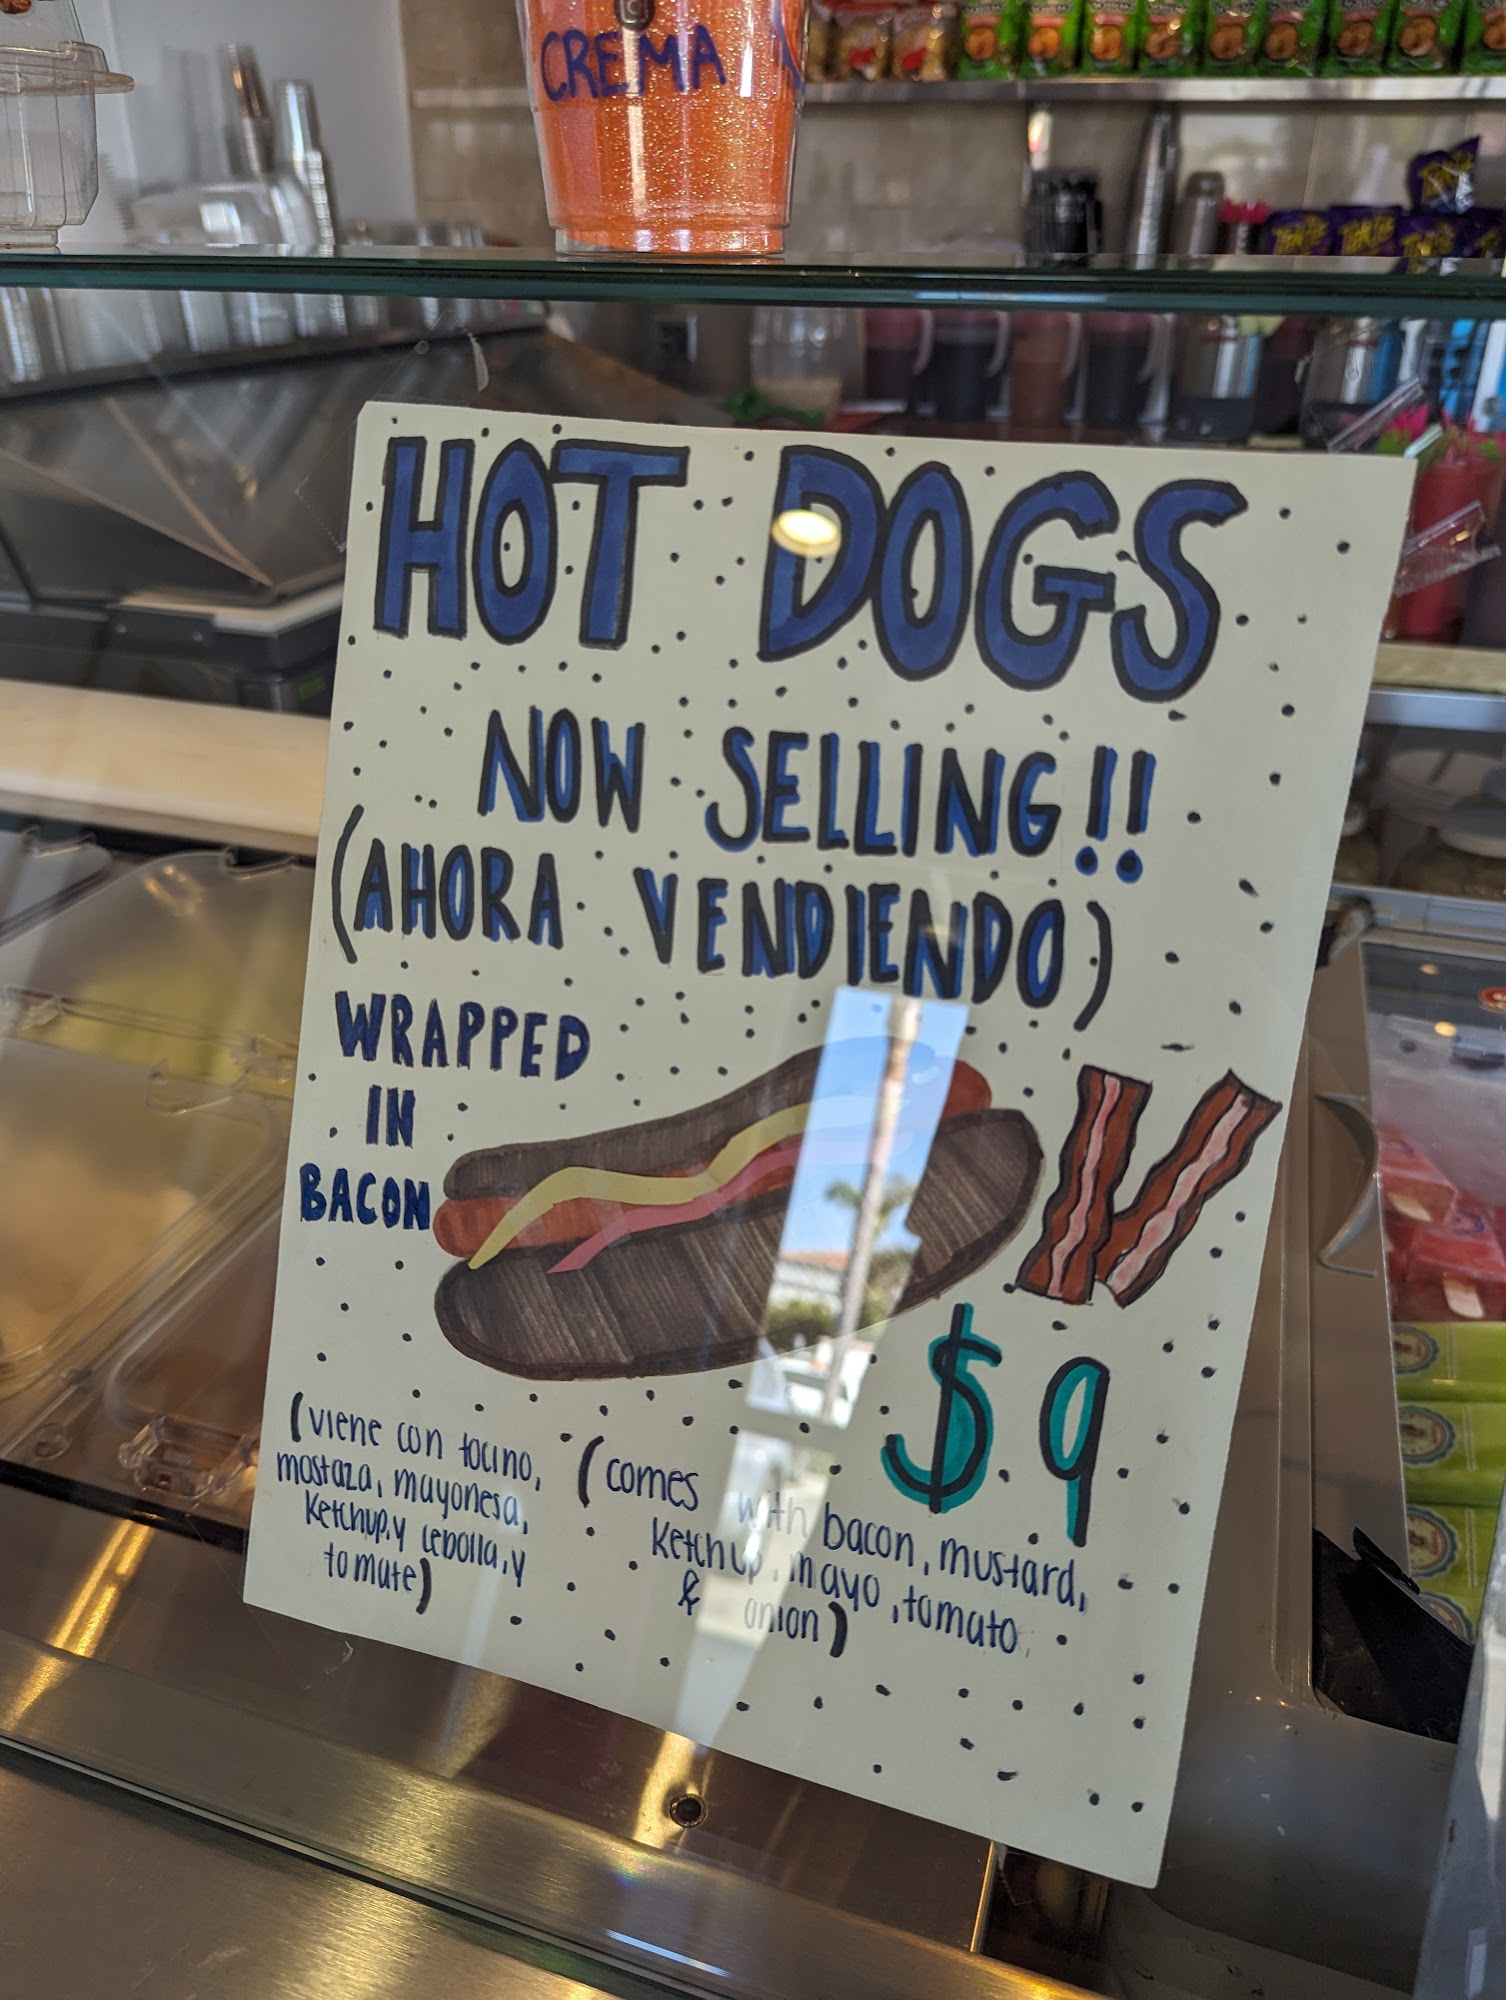 CREMA
Takis
Takis
Takis
Takis
HOT DOGS
NOW SELLING!!
(AHORA VENDIENDO)
WRAPPED
IN
BACON
$9
(viene con tocino,
mostaza, mayonesa,
Ketchup,y cebolla,y
tomate)
(comes with bacon, mustard,
Ketchup, mayo, tomato
& onion)